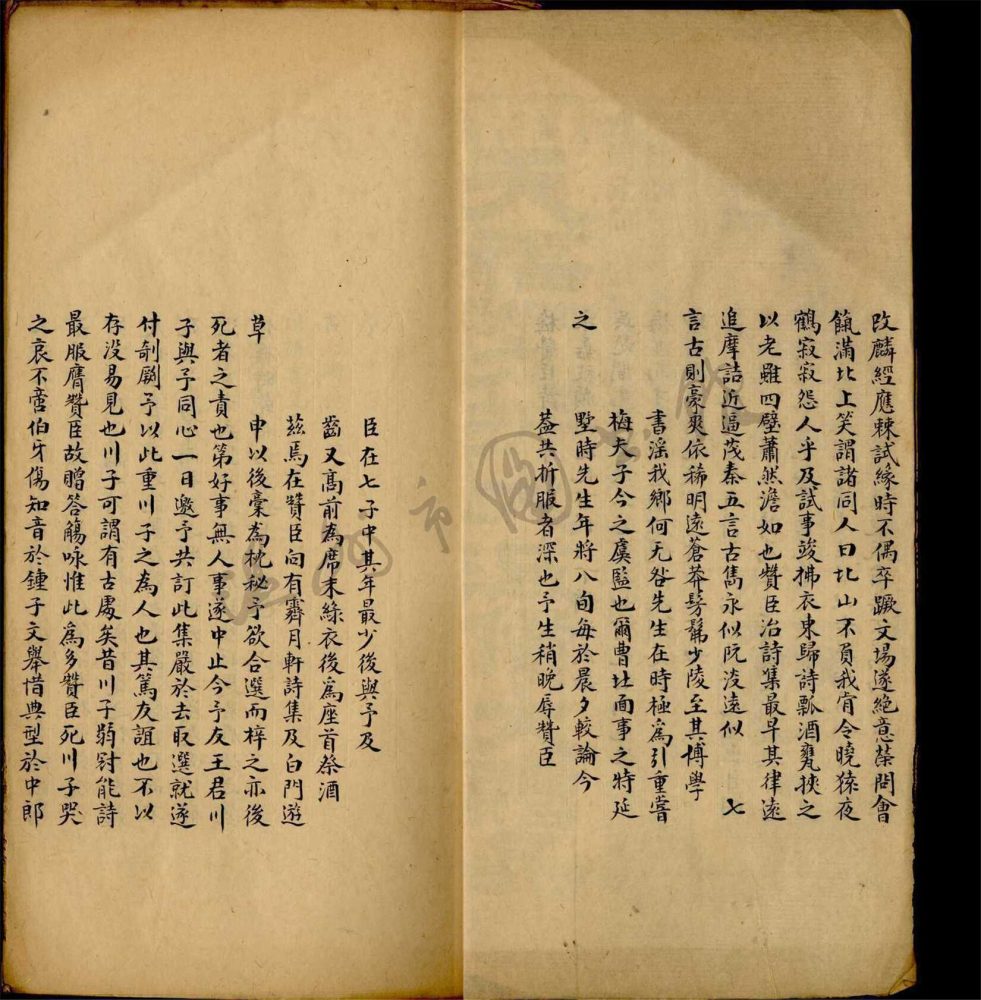 改麟經應棘試緣時不偶卒蹶文場遂絕意榮問會
餼滿北上笑謂諸同人曰北山不負我肯令曉猿夜
鶴寂寂怨人乎及試事竣拂衣東歸詩瓢酒甕挾之
以老雖四壁蕭然澹如也贊臣治詩集最早其律遠
追摩詰近逼茂秦五言古雋永似阮淩遠似 七
言古則豪爽依稀明遠蒼莽髣髴少陵至其博學
書滛我鄉何无咎先生在時極為引重嘗
梅天子今之虞監也爾曹北面事之特延
之 墅時先生年將八旬每於晨夕較論今
葢共折服者深也予生稍晚辱贊臣
臣在七子中其年最少後與予及
齒又高前為席末綠衣後為座首祭酒
茲焉在贊臣向有霽月軒詩集及白門遊
草 申以後稾為枕秘予欲合選而梓之亦後
死者之責也第好事無人事遂中止今予友王君川
子與予同心一日邀予共訂此集嚴於去取選就遂
付剞劂予以此重川子之為人也其篤友誼也不以
存没易見也川子可謂有古處矣昔川子弱冠能詩
最服膺贊臣故贈答觴咏惟此為多贊臣死川子哭
之哀不啻伯牙傷知音於鍾子文舉惜典型於中郎